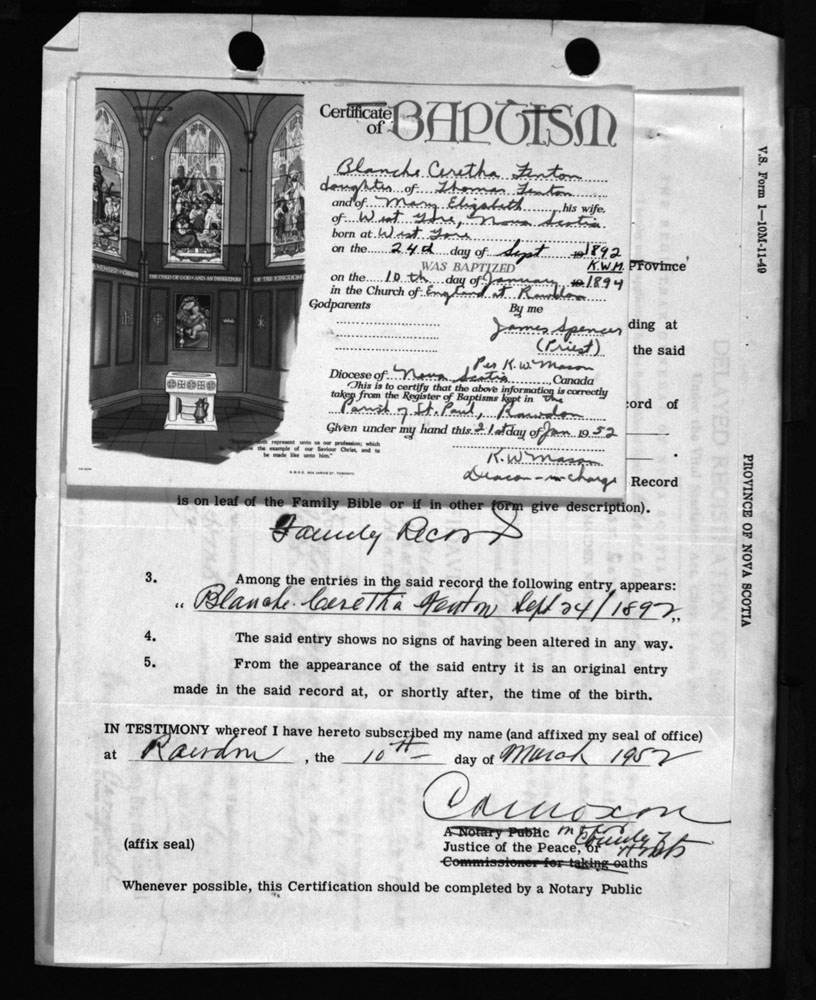 Certificate
of BAPTISM
Blanche Ceretha Fenton
daughter of Thomas Fenton
and of Mary Elizabeth his wife,
of West Gore, Nova Scotia
born at West Gore
on the 24th day of Sept 1892
WAS BAPTIZED K.W.M. Province
on the 10th day of January 1894
in the Church of England at Rawdon
Godparents By me
James Spencer ding at
(Priest) the said
Per K.W. Mason
Diocese of Nova Scotia, Canada
This is to certify that the above information is correctly
taken from the Register of Baptisms kept in the
Parish of St. Paul, Rawdon ord of
Given under my hand this 21st day of Jan 1952
K.W. Mason
Deacon-in-charge Record
represent unto us our profession; which
the example of our Saviour Christ, and to
be made like unto him."
is on leaf of the Family Bible or if in other form give description).
Family Record
3. Among the entries in the said record the following entry appears:
"Blanche Ceretha Fenton Sept 24/1892"
4. The said entry shows no signs of having been altered in any way.
5. From the appearance of the said entry it is an original entry
made in the said record at, or shortly after, the time of the birth.
IN TESTIMONY whereof I have hereto subscribed my name (and affixed my seal of office)
at Rawdon, the 10th day of March 1952
A Notary Public
(affix seal) Justice of the Peace, or County of Hants
Commissioner for taking oaths
Whenever possible, this Certification should be completed by a Notary Public
V.S. Form 1—10M-11-49
PROVINCE OF NOVA SCOTIA